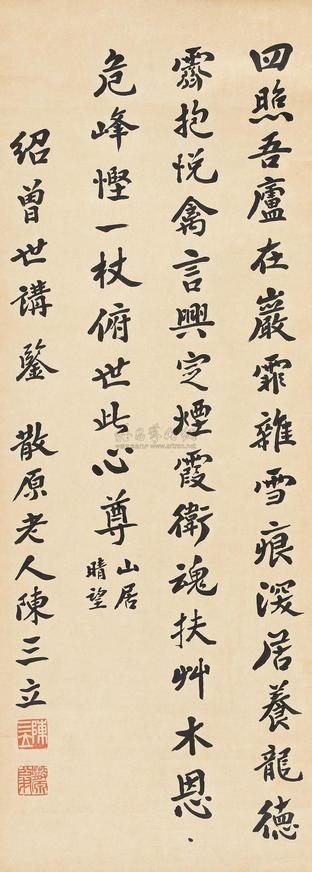 四照吾廬在巖霏雜雪痕深居養龍德
霽抱悅禽言興定煙霞衛魂扶艸木恩
危峰慳一杖俯世此心尊 山居
晴望
紹曾世講鑒 散原老人陳三立
陳三立